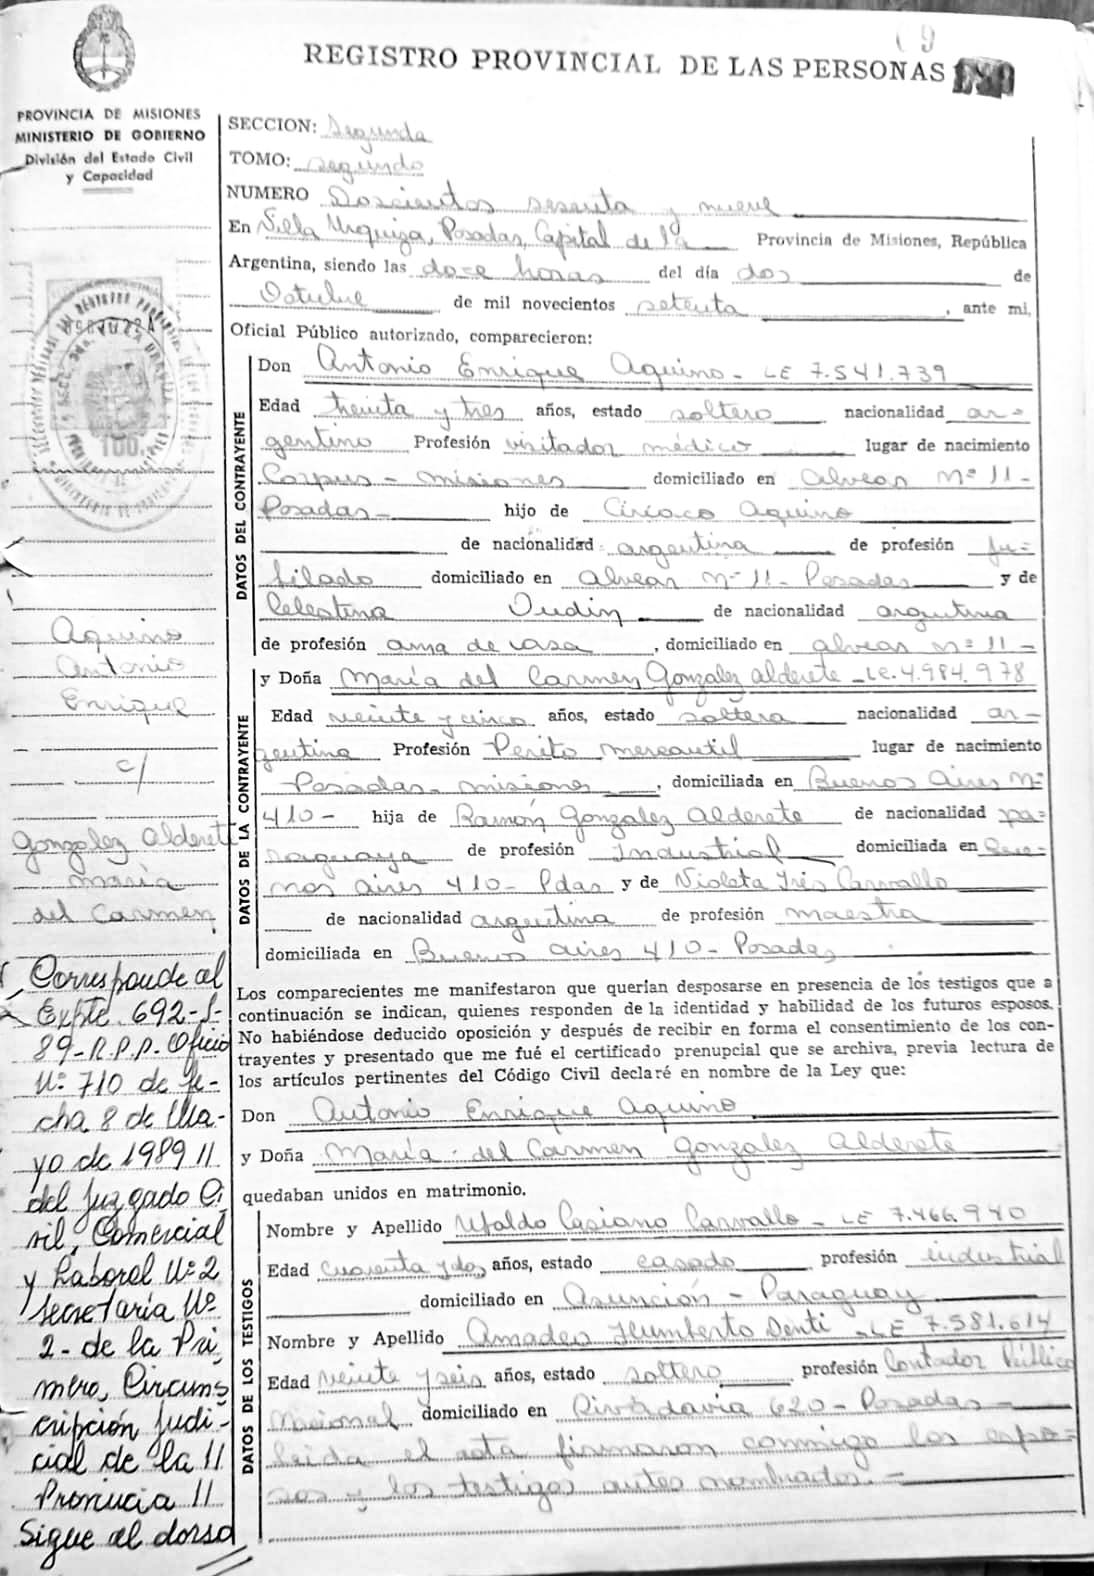 REGISTRO PROVINCIAL DE LAS PERSONAS
PROVINCIA DE MISIONES
MINISTERIO DE GOBIERNO
División del Estado Civil
y Capacidad
SECCION: Segunda
TOMO: segundo
NUMERO Doscientos sesenta y nueve
En Villa Urquiza, Posadas, Capital de la Provincia de Misiones, República
Argentina, siendo las doce horas del día dos de
Octubre de mil novecientos setenta, ante mi,
Oficial Público autorizado, comparecieron:
DATOS DEL CONTRAYENTE
Don Antonio Enrique Aquino - LE 7.541.739
Edad treinta y tres años, estado soltero nacionalidad ar=
gentino Profesión visitador médico lugar de nacimiento
Corpus - misiones domiciliado en Alvear Nº 11 -
Posadas - hijo de Ciriaco Aquino
de nacionalidad argentina de profesión ju=
bilado domiciliado en Alvear Nº 11 - Posadas y de
Celestina Oudin de nacionalidad argentina
de profesión ama de casa, domiciliado en alvear nº 11 -
DATOS DE LA CONTRAYENTE
y Doña María del Carmen Gonzalez Alderete - LC. 4.984.978
Edad veinte y cinco años, estado soltera nacionalidad ar -
gentina Profesión Perito mercantil lugar de nacimiento
Posadas - misiones, domiciliada en Buenos Aires Nº
410 - hija de Ramón Gonzalez Alderete de nacionalidad pa=
raguaya de profesión Industrial domiciliada en Bue=
nos aires 410 - Pdas y de Violeta Iris Carvallo
de nacionalidad argentina de profesión maestra
domiciliada en Buenos aires 410 - Posadas
Los comparecientes me manifestaron que querían desposarse en presencia de los testigos que a
continuación se indican, quienes responden de la identidad y habilidad de los futuros esposos.
No habiéndose deducido oposición y después de recibir en forma el consentimiento de los con-
trayentes y presentado que me fué el certificado prenupcial que se archiva, previa lectura de
los artículos pertinentes del Código Civil declaré en nombre de la Ley que:
Don Antonio Enrique Aquino
y Doña María del Carmen Gonzalez Alderete
quedaban unidos en matrimonio.
DATOS DE LOS TESTIGOS
Nombre y Apellido Ubaldo Casiano Carvallo - LE 7.466.940
Edad cuarenta y dos años, estado casado profesión industrial
domiciliado en Asunción - Paraguay
Nombre y Apellido Amadeo Humberto Denti - LE 7.581.614
Edad veinte y seis años, estado soltero profesión Contador Público
Nacional domiciliado en Rivadavia 620 - Posadas -
leida el acta firmaron conmigo los espo=
sos y los testigos antes nombrados. -
Aquino
Antonio
Enrique
c/
Gonzalez Alderete
maría
del Carmen
Corresponde al
Expte. 692-S-
89-R.P.P. Oficio
Nº 710 de fe-
cha 8 de Ma-
yo de 1989 //
del Juzgado Ci
vil, Comercial
y Laboral Nº 2
Secretaría Nº
2 - de la Pri
mera, Circuns
cripción Judi-
cial de la //
Provincia //
Sigue al dorso